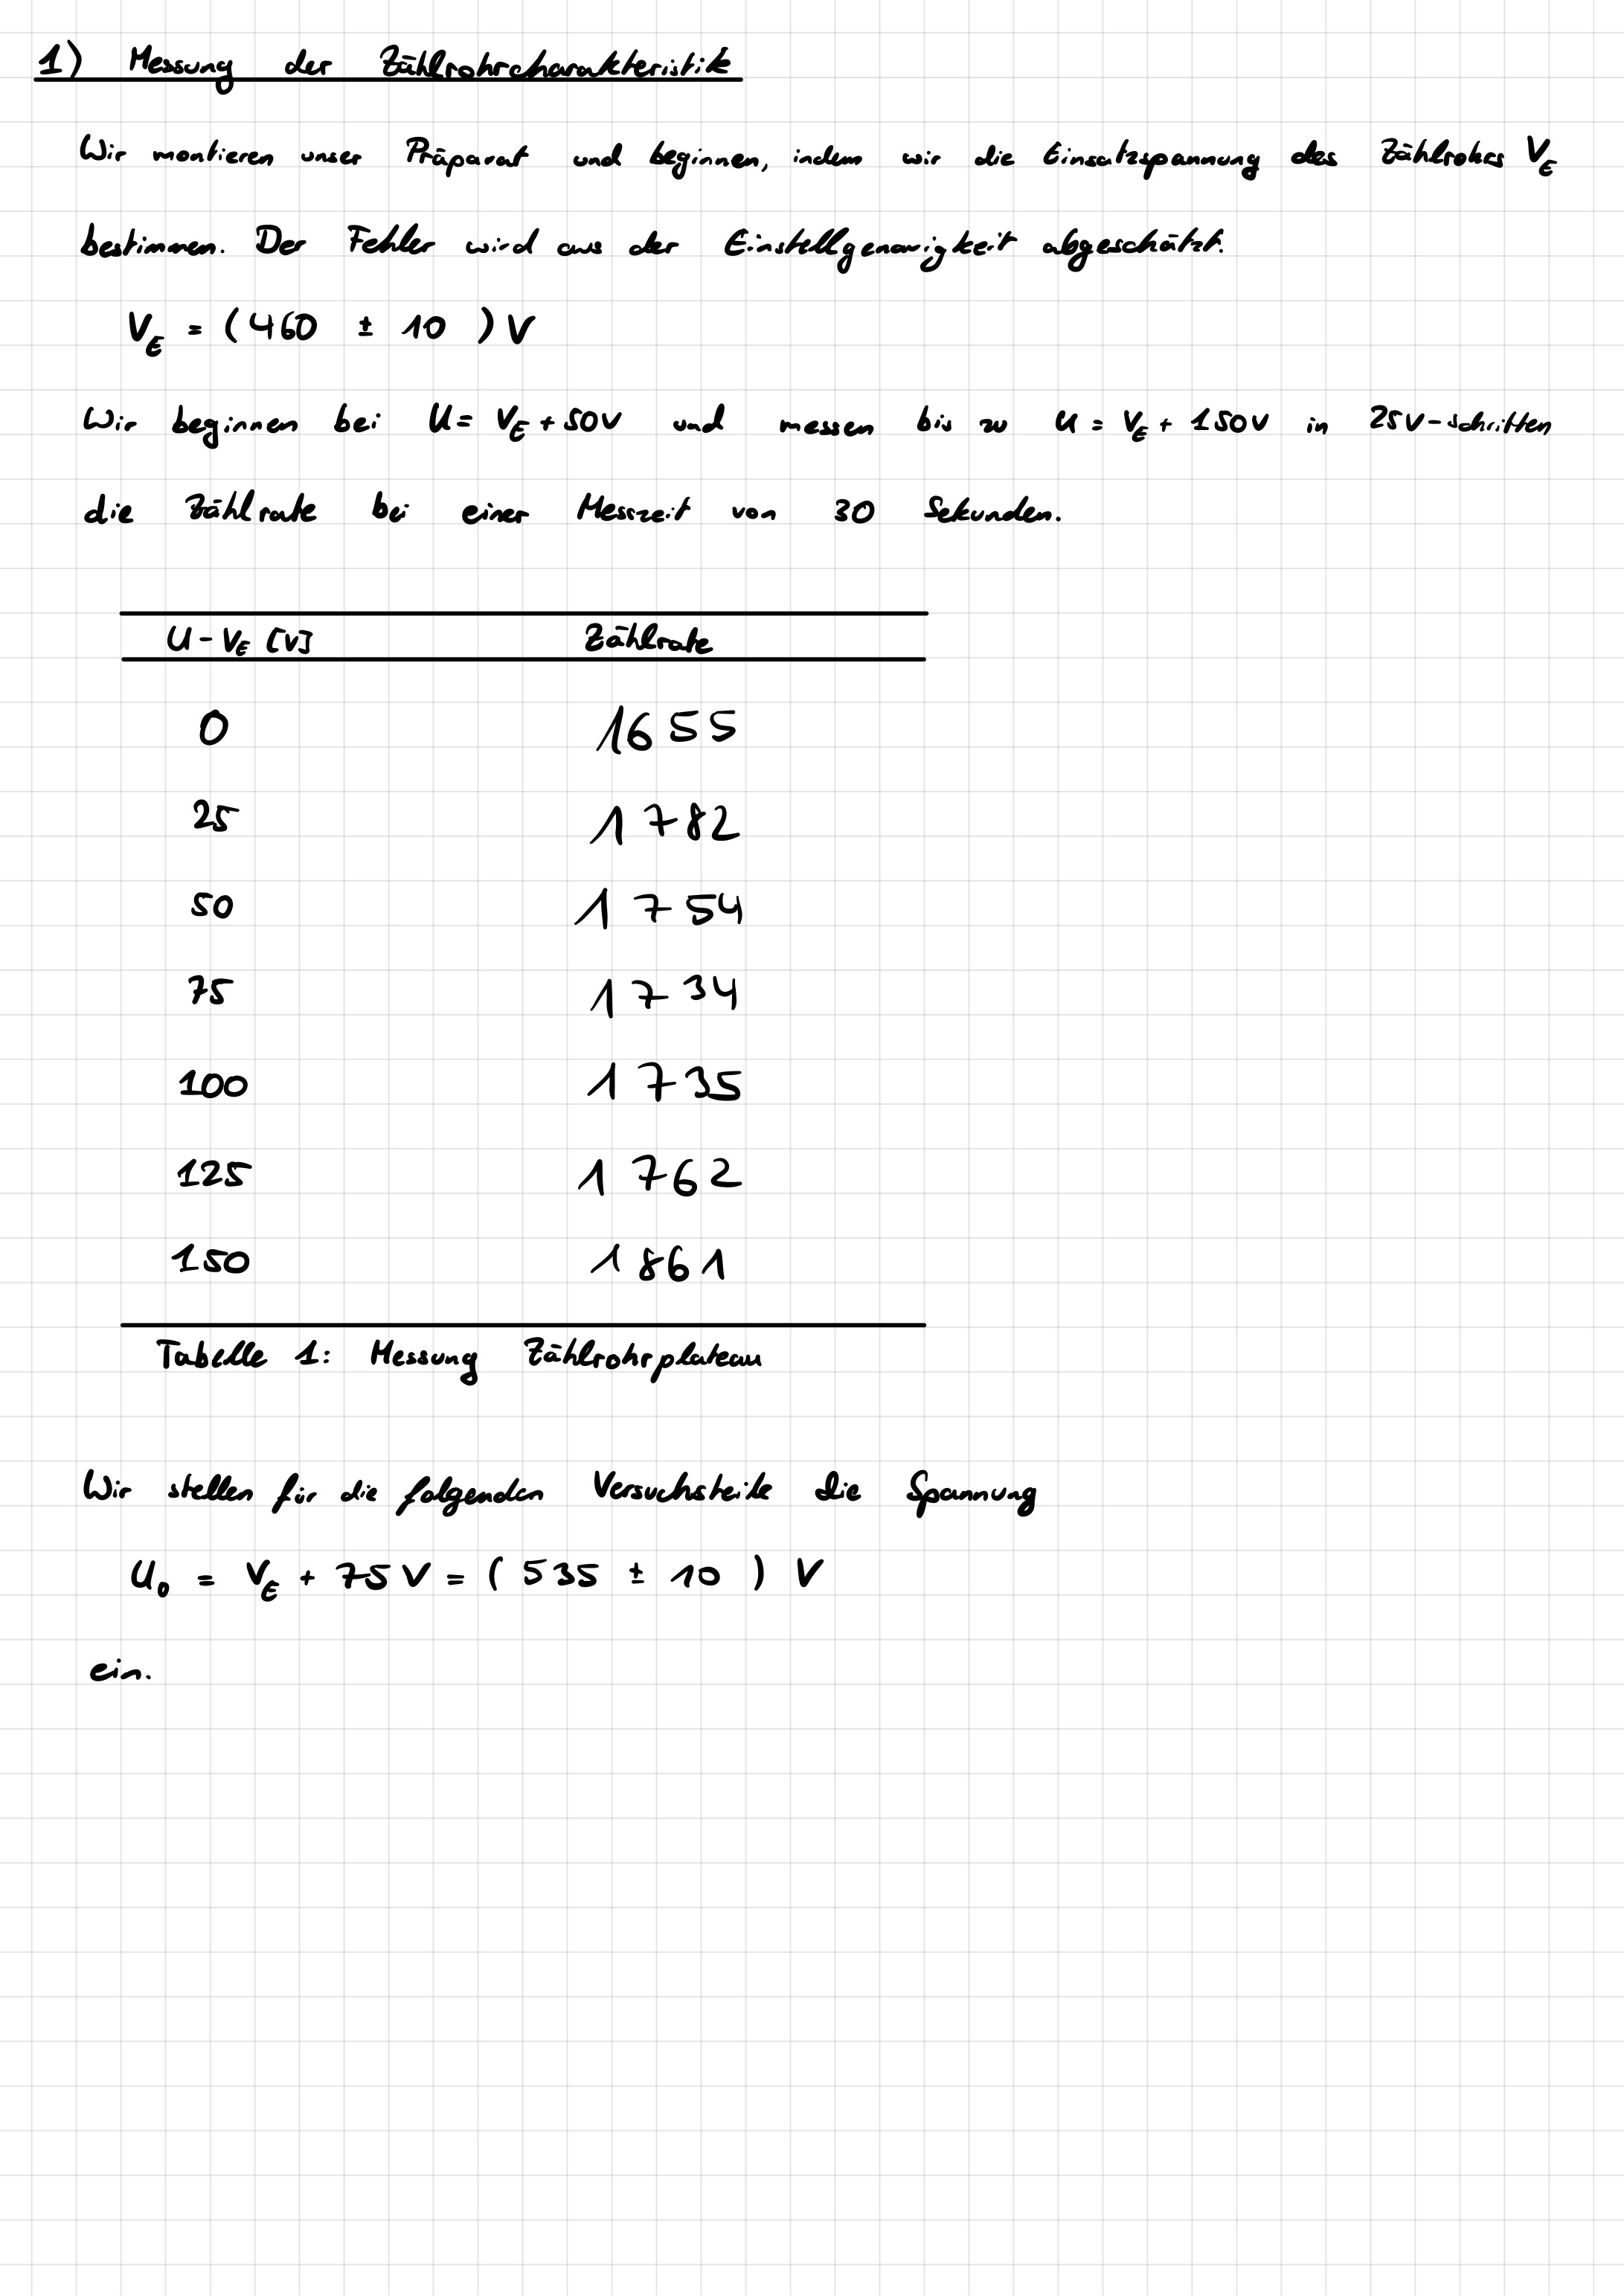 1) Messung der Zählrohrcharakteristik
Wir montieren unser Präparat und beginnen, indem wir die Einsatzspannung des Zählrohrs V_E
bestimmen. Der Fehler wird aus der Einstellgenauigkeit abgeschätzt.
V_E = (460 ± 10) V
Wir beginnen bei U = V_E + 50V und messen bis zu U = V_E + 150V in 25V-schritten
die Zählrate bei einer Messzeit von 30 Sekunden.
U - V_E [V] Zählrate
0 1655
25 1782
50 1754
75 1734
100 1735
125 1762
150 1861
Tabelle 1: Messung Zählrohrplateau
Wir stellen für die folgenden Versuchsteile die Spannung
U_0 = V_E + 75V = (535 ± 10) V
ein.